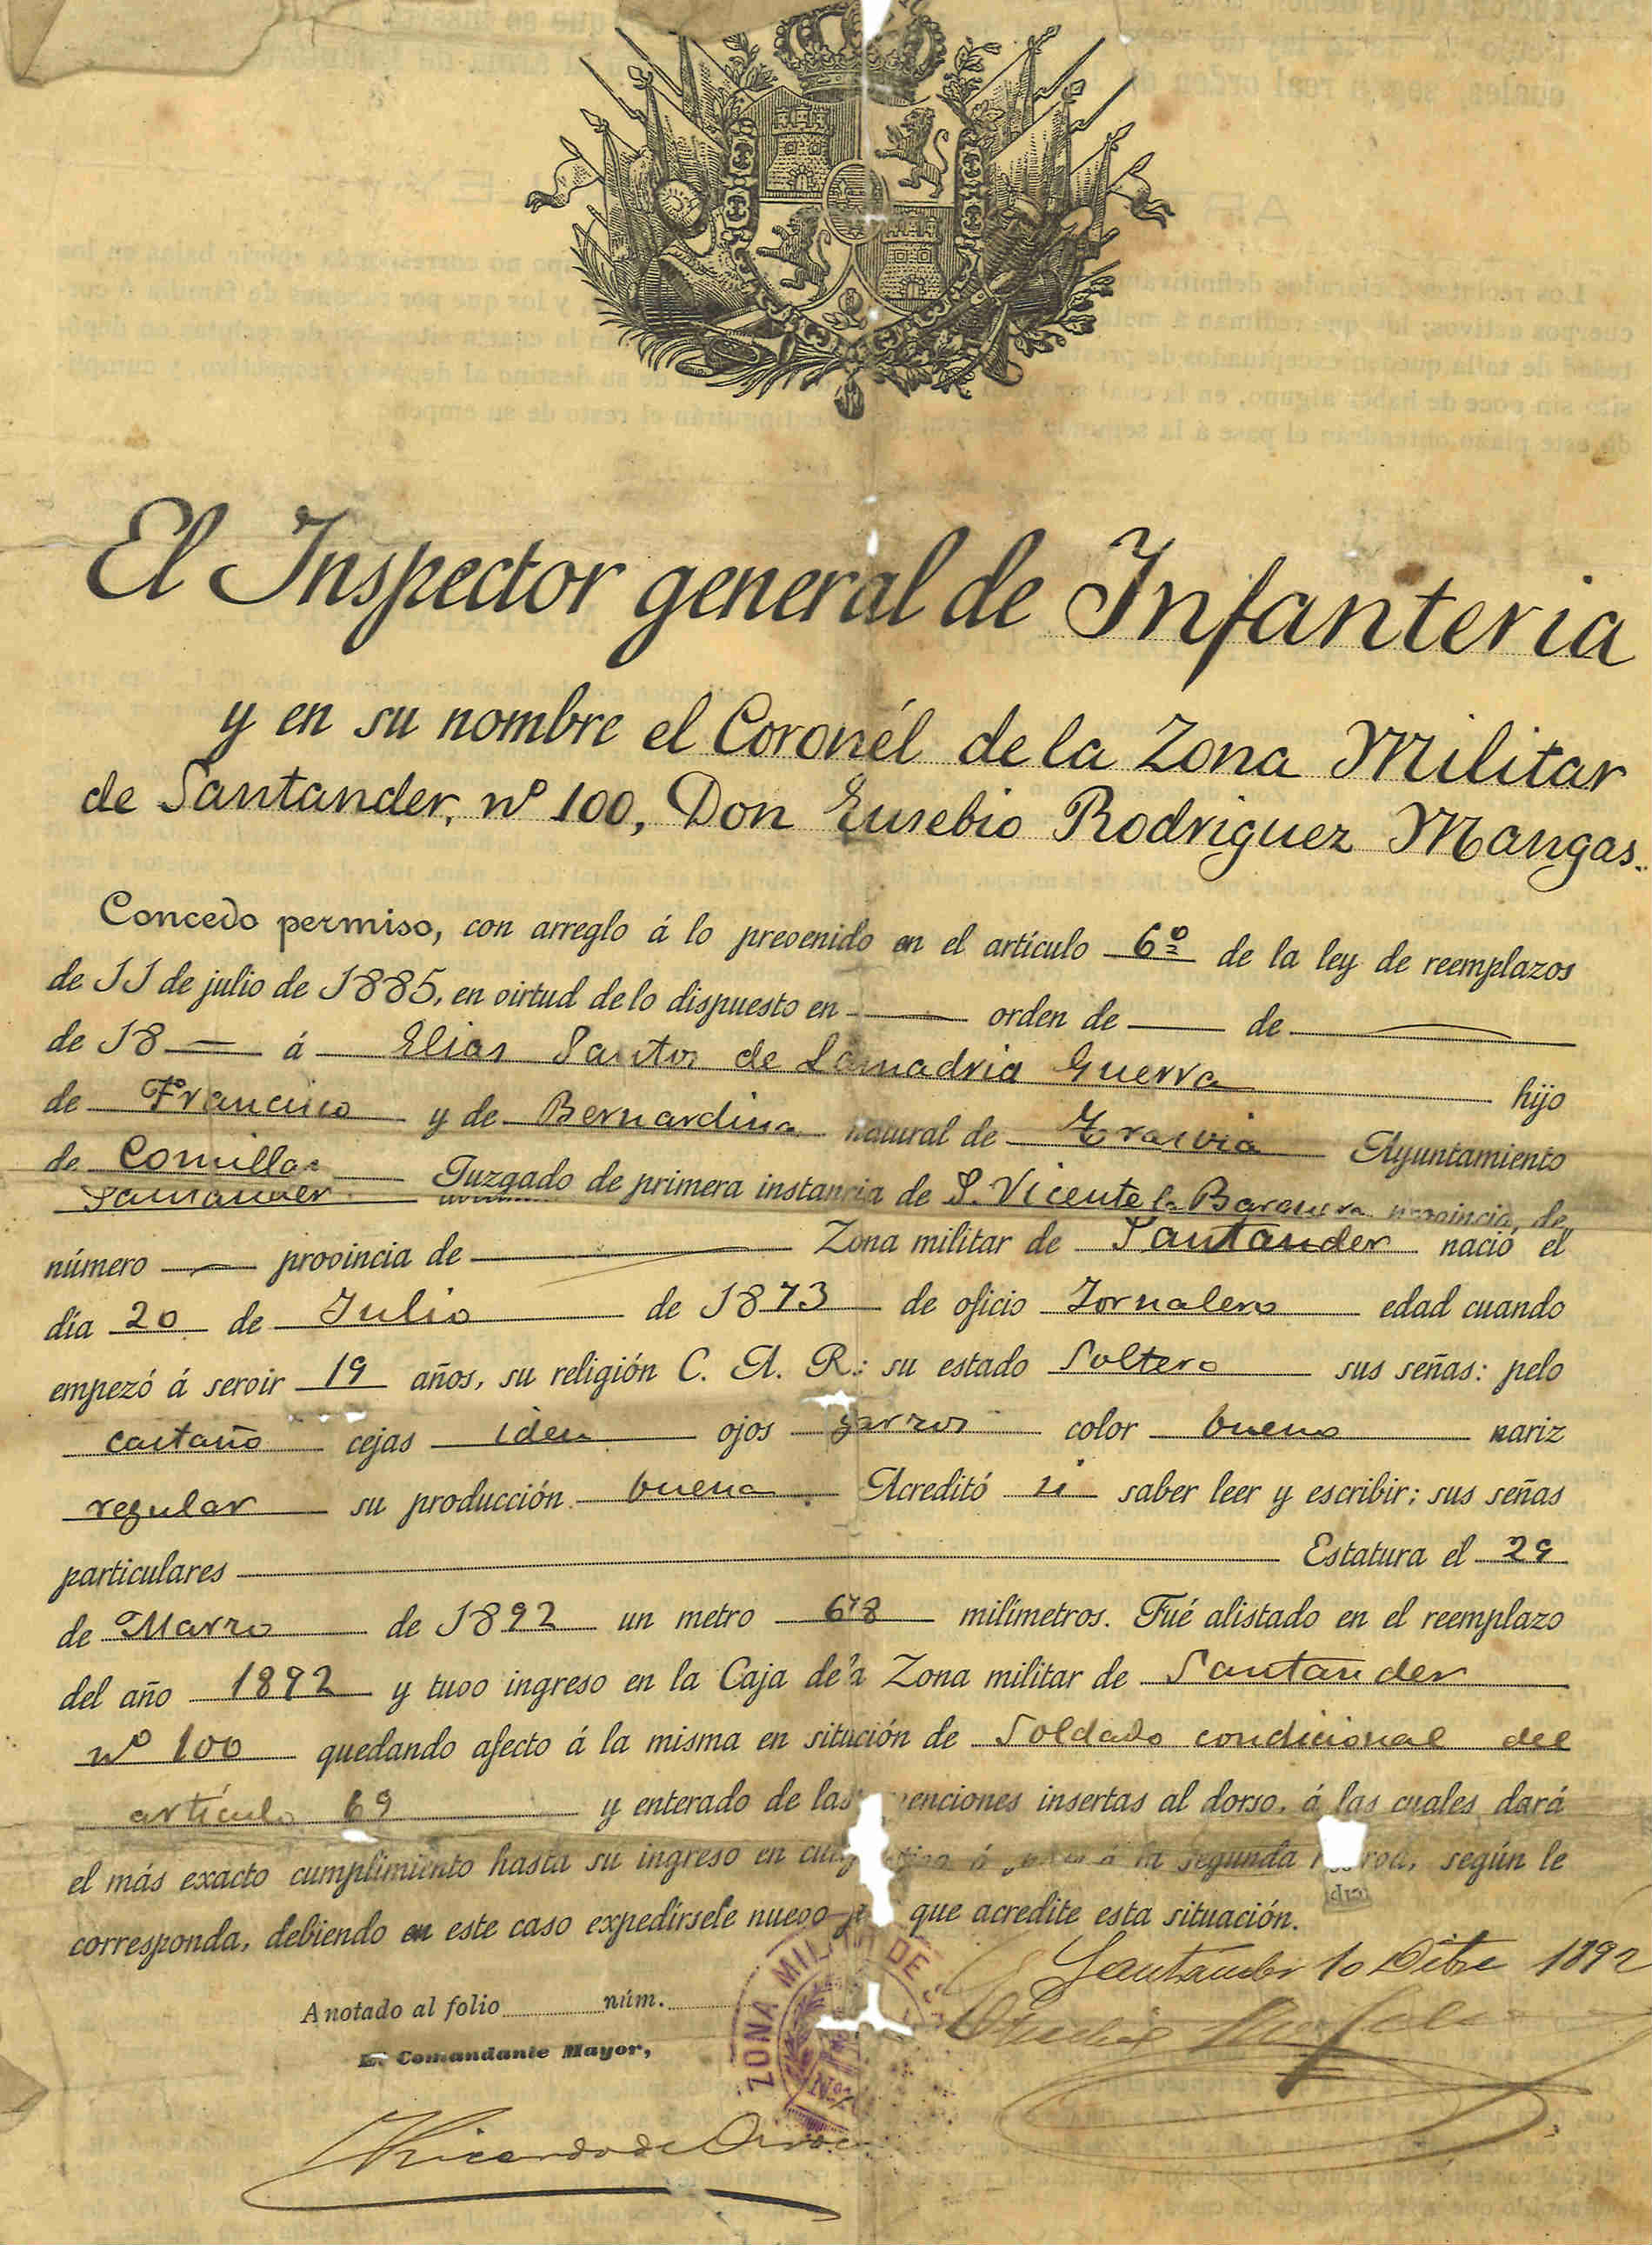 El Inspector general de Infanteria
y en su nombre el Coronél de la Zona Militar
de Santander, nº 100, Don Eusebio Rodriguez Mangas.
Concedo permiso, con arreglo á lo prevenido en el artículo 6º de la ley de reemplazos
de 11 de julio de 1885, en virtud de lo dispuesto en — orden de — de —
de 18 — á Elias Santos de Lamadrid Guerra hijo
de Francisco y de Bernardina natural de Trasvia Ayuntamiento
de Comillas Juzgado de primera instancia de S. Vicente la Barquera provincia, de
Santander
número — provincia de — Zona militar de Santander nació el
día 20 de Julio de 1873 de oficio Jornalero edad cuando
empezó á servir 19 años, su religión C. A. R.: su estado Soltero sus señas: pelo
castaño cejas iden ojos garzos color bueno nariz
regular su producción buena Acreditó si saber leer y escribir; sus señas
particulares Estatura el 29
de Marzo de 1892 un metro 678 milímetros. Fué alistado en el reemplazo
del año 1892 y tuvo ingreso en la Caja de Zona militar de Santander
nº 100 quedando afecto á la misma en situción de Soldado condicional del
artículo 69 y enterado de las venciones insertas al dorso, á las cuales dará
el más exacto cumplimiento hasta su ingreso en á la segunda según le
corresponda, debiendo en este caso expedírsele nuevo que acredite esta situación.
Santander 10 Dibre 1892
Anotado al folio núm.
El Comandante Mayor,
ZONA MILITAR DE
Nº
Ricardo de